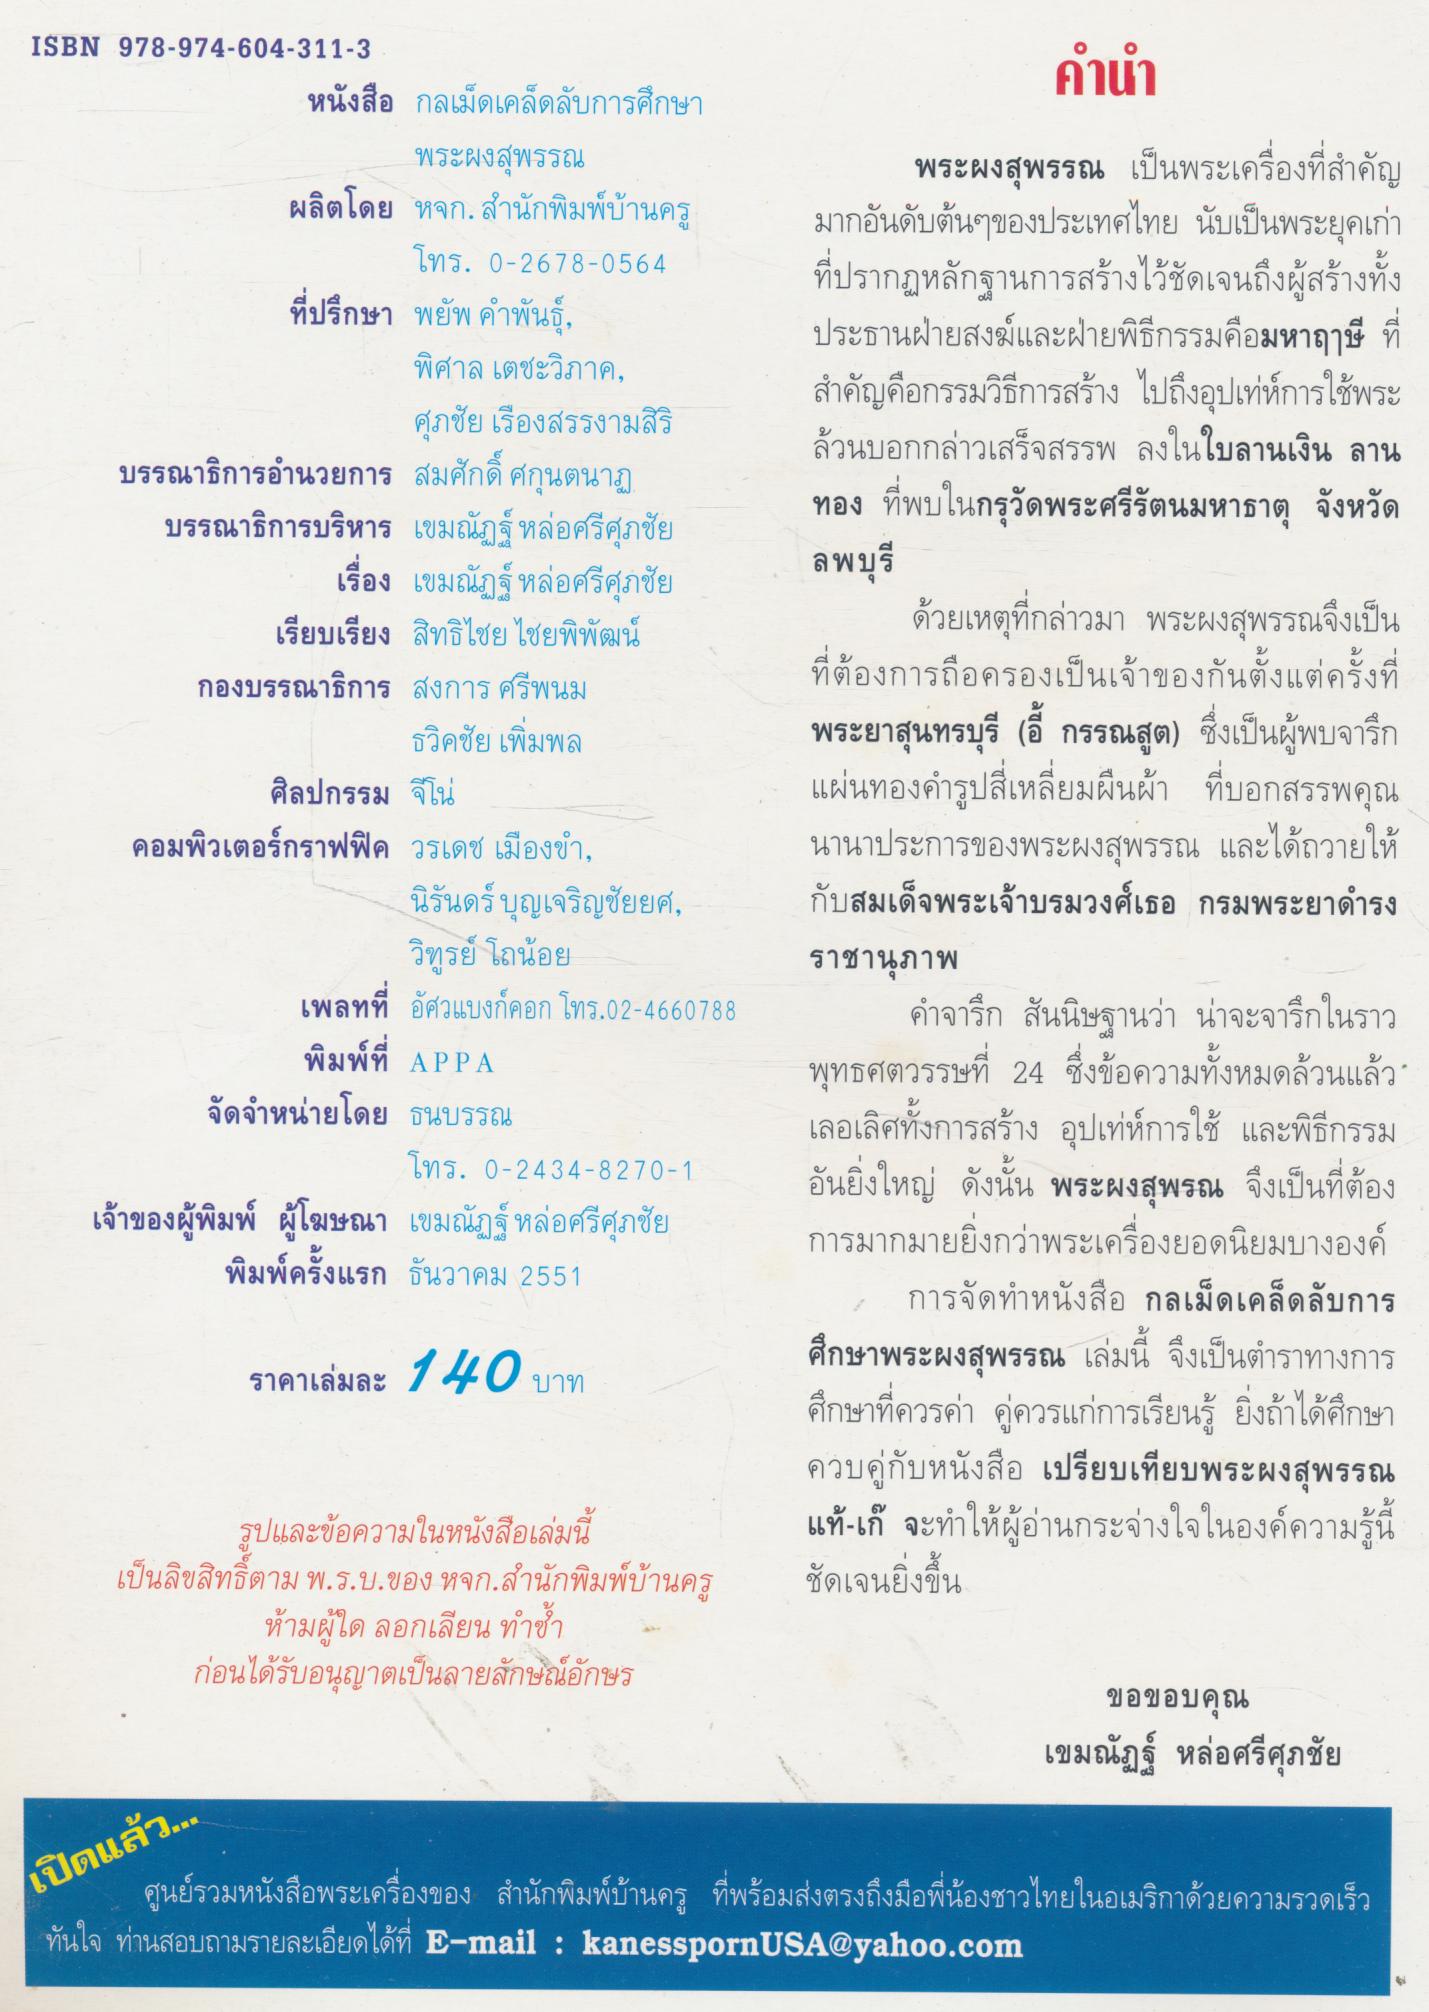 ISBN 978-974-604-311-3
หนังสือ กลเม็ดเคล็ดลับการศึกษา
พระผงสุพรรณ
ผลิตโดย หจก. สำนักพิมพ์บ้านครู
โทร. 0-2678-0564
ที่ปรึกษา พยัพ คำพันธุ์,
พิศาล เตชะวิภาค,
ศุภชัย เรืองสรรงามสิริ
บรรณาธิการอำนวยการ สมศักดิ์ ศกุนตนาฏ
บรรณาธิการบริหาร เขมณัฏฐ์ หล่อศรีศุภชัย
เรื่อง เขมณัฏฐ์ หล่อศรีศุภชัย
เรียบเรียง สิทธิไชย ไชยพิพัฒน์
กองบรรณาธิการ สงการ ศรีพนม
ธวิคชัย เพิ่มพล
ศิลปกรรม จีโน่
คอมพิวเตอร์กราฟฟิค วรเดช เมืองขำ,
นิรันดร์ บุญเจริญชัยยศ,
วิฑูรย์ โถน้อย
เพลทที่ อัศวแบงก์คอก โทร.02-4660788
พิมพ์ที่ APPA
จัดจำหน่ายโดย ธนบรรณ
โทร. 0-2434-8270-1
เจ้าของผู้พิมพ์ ผู้โฆษณา เขมณัฏฐ์ หล่อศรีศุภชัย
พิมพ์ครั้งแรก ธันวาคม 2551
ราคาเล่มละ 140 บาท
รูปและข้อความในหนังสือเล่มนี้
เป็นลิขสิทธิ์ตาม พ.ร.บ.ของ หจก.สำนักพิมพ์บ้านครู
ห้ามผู้ใด ลอกเลียน ทำซ้ำ
ก่อนได้รับอนุญาตเป็นลายลักษณ์อักษร
คำนำ
พระผงสุพรรณ เป็นพระเครื่องที่สำคัญ
มากอันดับต้นๆของประเทศไทย นับเป็นพระยุคเก่า
ที่ปรากฏหลักฐานการสร้างไว้ชัดเจนถึงผู้สร้างทั้ง
ประธานฝ่ายสงฆ์และฝ่ายพิธีกรรมคือมหาฤๅษี ที่
สำคัญคือกรรมวิธีการสร้าง ไปถึงอุปเท่ห์การใช้พระ
ล้วนบอกกล่าวเสร็จสรรพ ลงในใบลานเงิน ลาน
ทอง ที่พบในกรุวัดพระศรีรัตนมหาธาตุ จังหวัด
ลพบุรี
ด้วยเหตุที่กล่าวมา พระผงสุพรรณจึงเป็น
ที่ต้องการถือครองเป็นเจ้าของกันตั้งแต่ครั้งที่
พระยาสุนทรบุรี (อี้ กรรณสูต) ซึ่งเป็นผู้พบจารึก
แผ่นทองคำรูปสี่เหลี่ยมผืนผ้า ที่บอกสรรพคุณ
นานาประการของพระผงสุพรรณ และได้ถวายให้
กับสมเด็จพระเจ้าบรมวงศ์เธอ กรมพระยาดำรง
ราชานุภาพ
คำจารึก สันนิษฐานว่า น่าจะจารึกในราว
พุทธศตวรรษที่ 24 ซึ่งข้อความทั้งหมดล้วนแล้ว
เลอเลิศทั้งการสร้าง อุปเท่ห์การใช้ และพิธีกรรม
อันยิ่งใหญ่ ดังนั้น พระผงสุพรณ จึงเป็นที่ต้อง
การมากมายยิ่งกว่าพระเครื่องยอดนิยมบางองค์
การจัดทำหนังสือ กลเม็ดเคล็ดลับการ
ศึกษาพระผงสุพรรณ เล่มนี้ จึงเป็นตำราทางการ
ศึกษาที่ควรค่า คู่ควรแก่การเรียนรู้ ยิ่งถ้าได้ศึกษา
ควบคู่กับหนังสือ เปรียบเทียบพระผงสุพรรณ
แท้-เก๊ จะทำให้ผู้อ่านกระจ่างใจในองค์ความรู้นี้
ชัดเจนยิ่งขึ้น
ขอขอบคุณ
เขมณัฏฐ์ หล่อศรีศุภชัย
เปิดแล้ว...
ศูนย์รวมหนังสือพระเครื่องของ สำนักพิมพ์บ้านครู ที่พร้อมส่งตรงถึงมือพี่น้องชาวไทยในอเมริกาด้วยความรวดเร็ว
ทันใจ ท่านสอบถามรายละเอียดได้ที่ E-mail : kanesspornUSA@yahoo.com